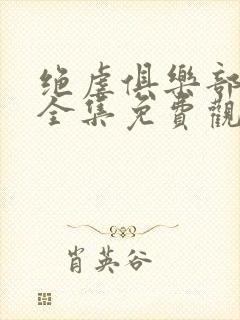 绝虐俱樂部
全集免費觀
肖英谷